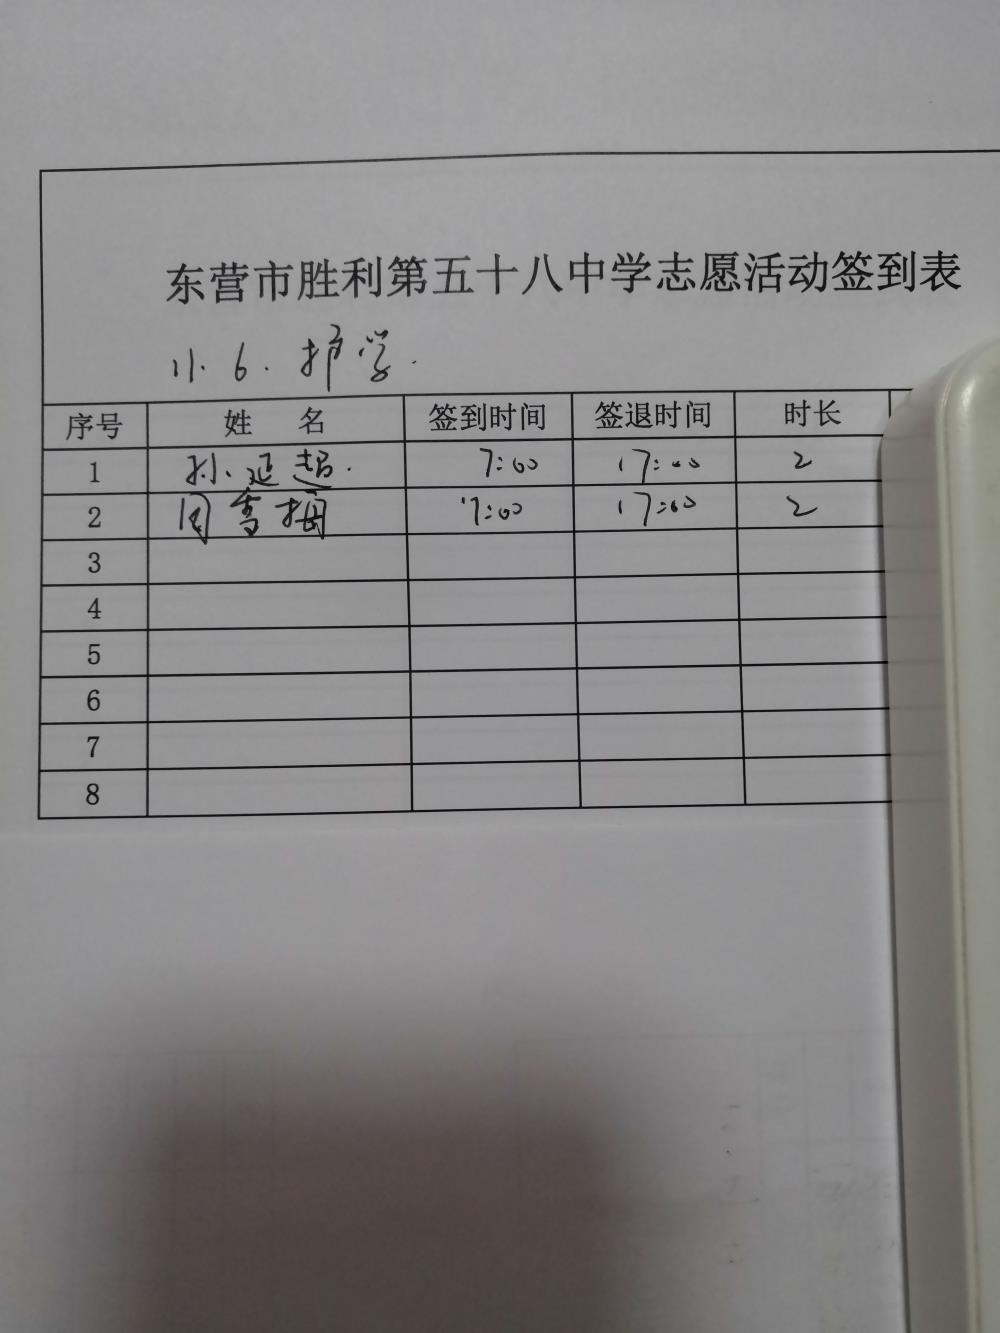 东营市胜利第五十八中学志愿活动签到表
11.6.护学.
序号 姓 名 签到时间 签退时间 时长
1 孙延超. 7:00 17:00 2
2 周雪梅 7:00 17:00 2
3
4
5
6
7
8